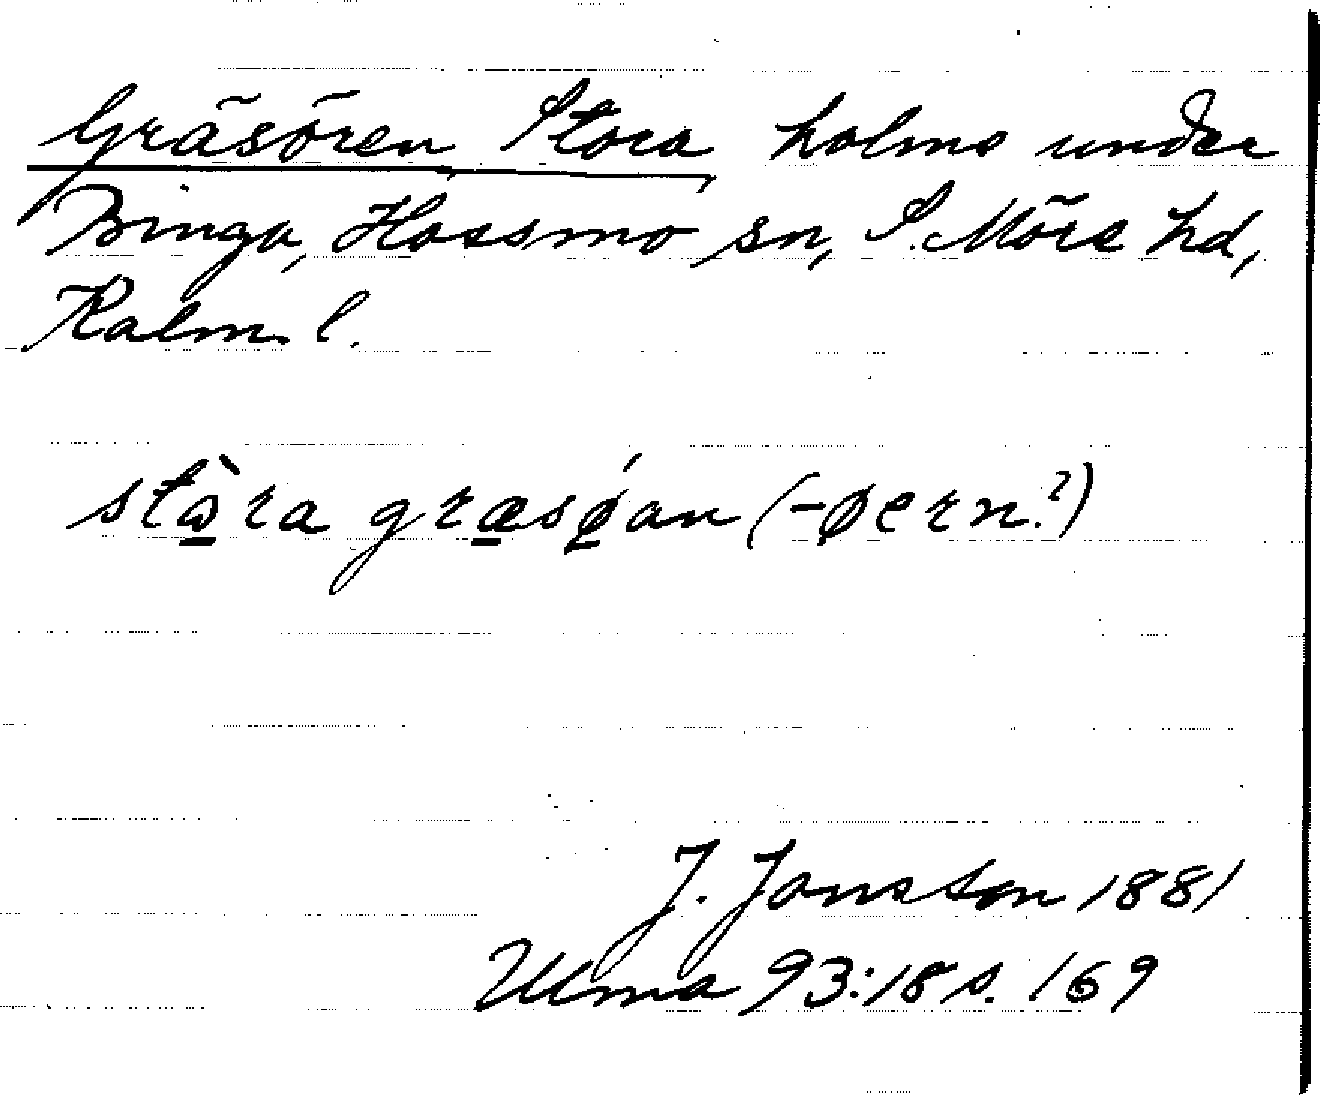 Gräsören Stora holme under
Binga, Hossmo sn, S. Möre hd,
Kalm. l.
stòra græsǿan (-øern?)
J. Jonsson 1881
Ulma 93:18 s. 169